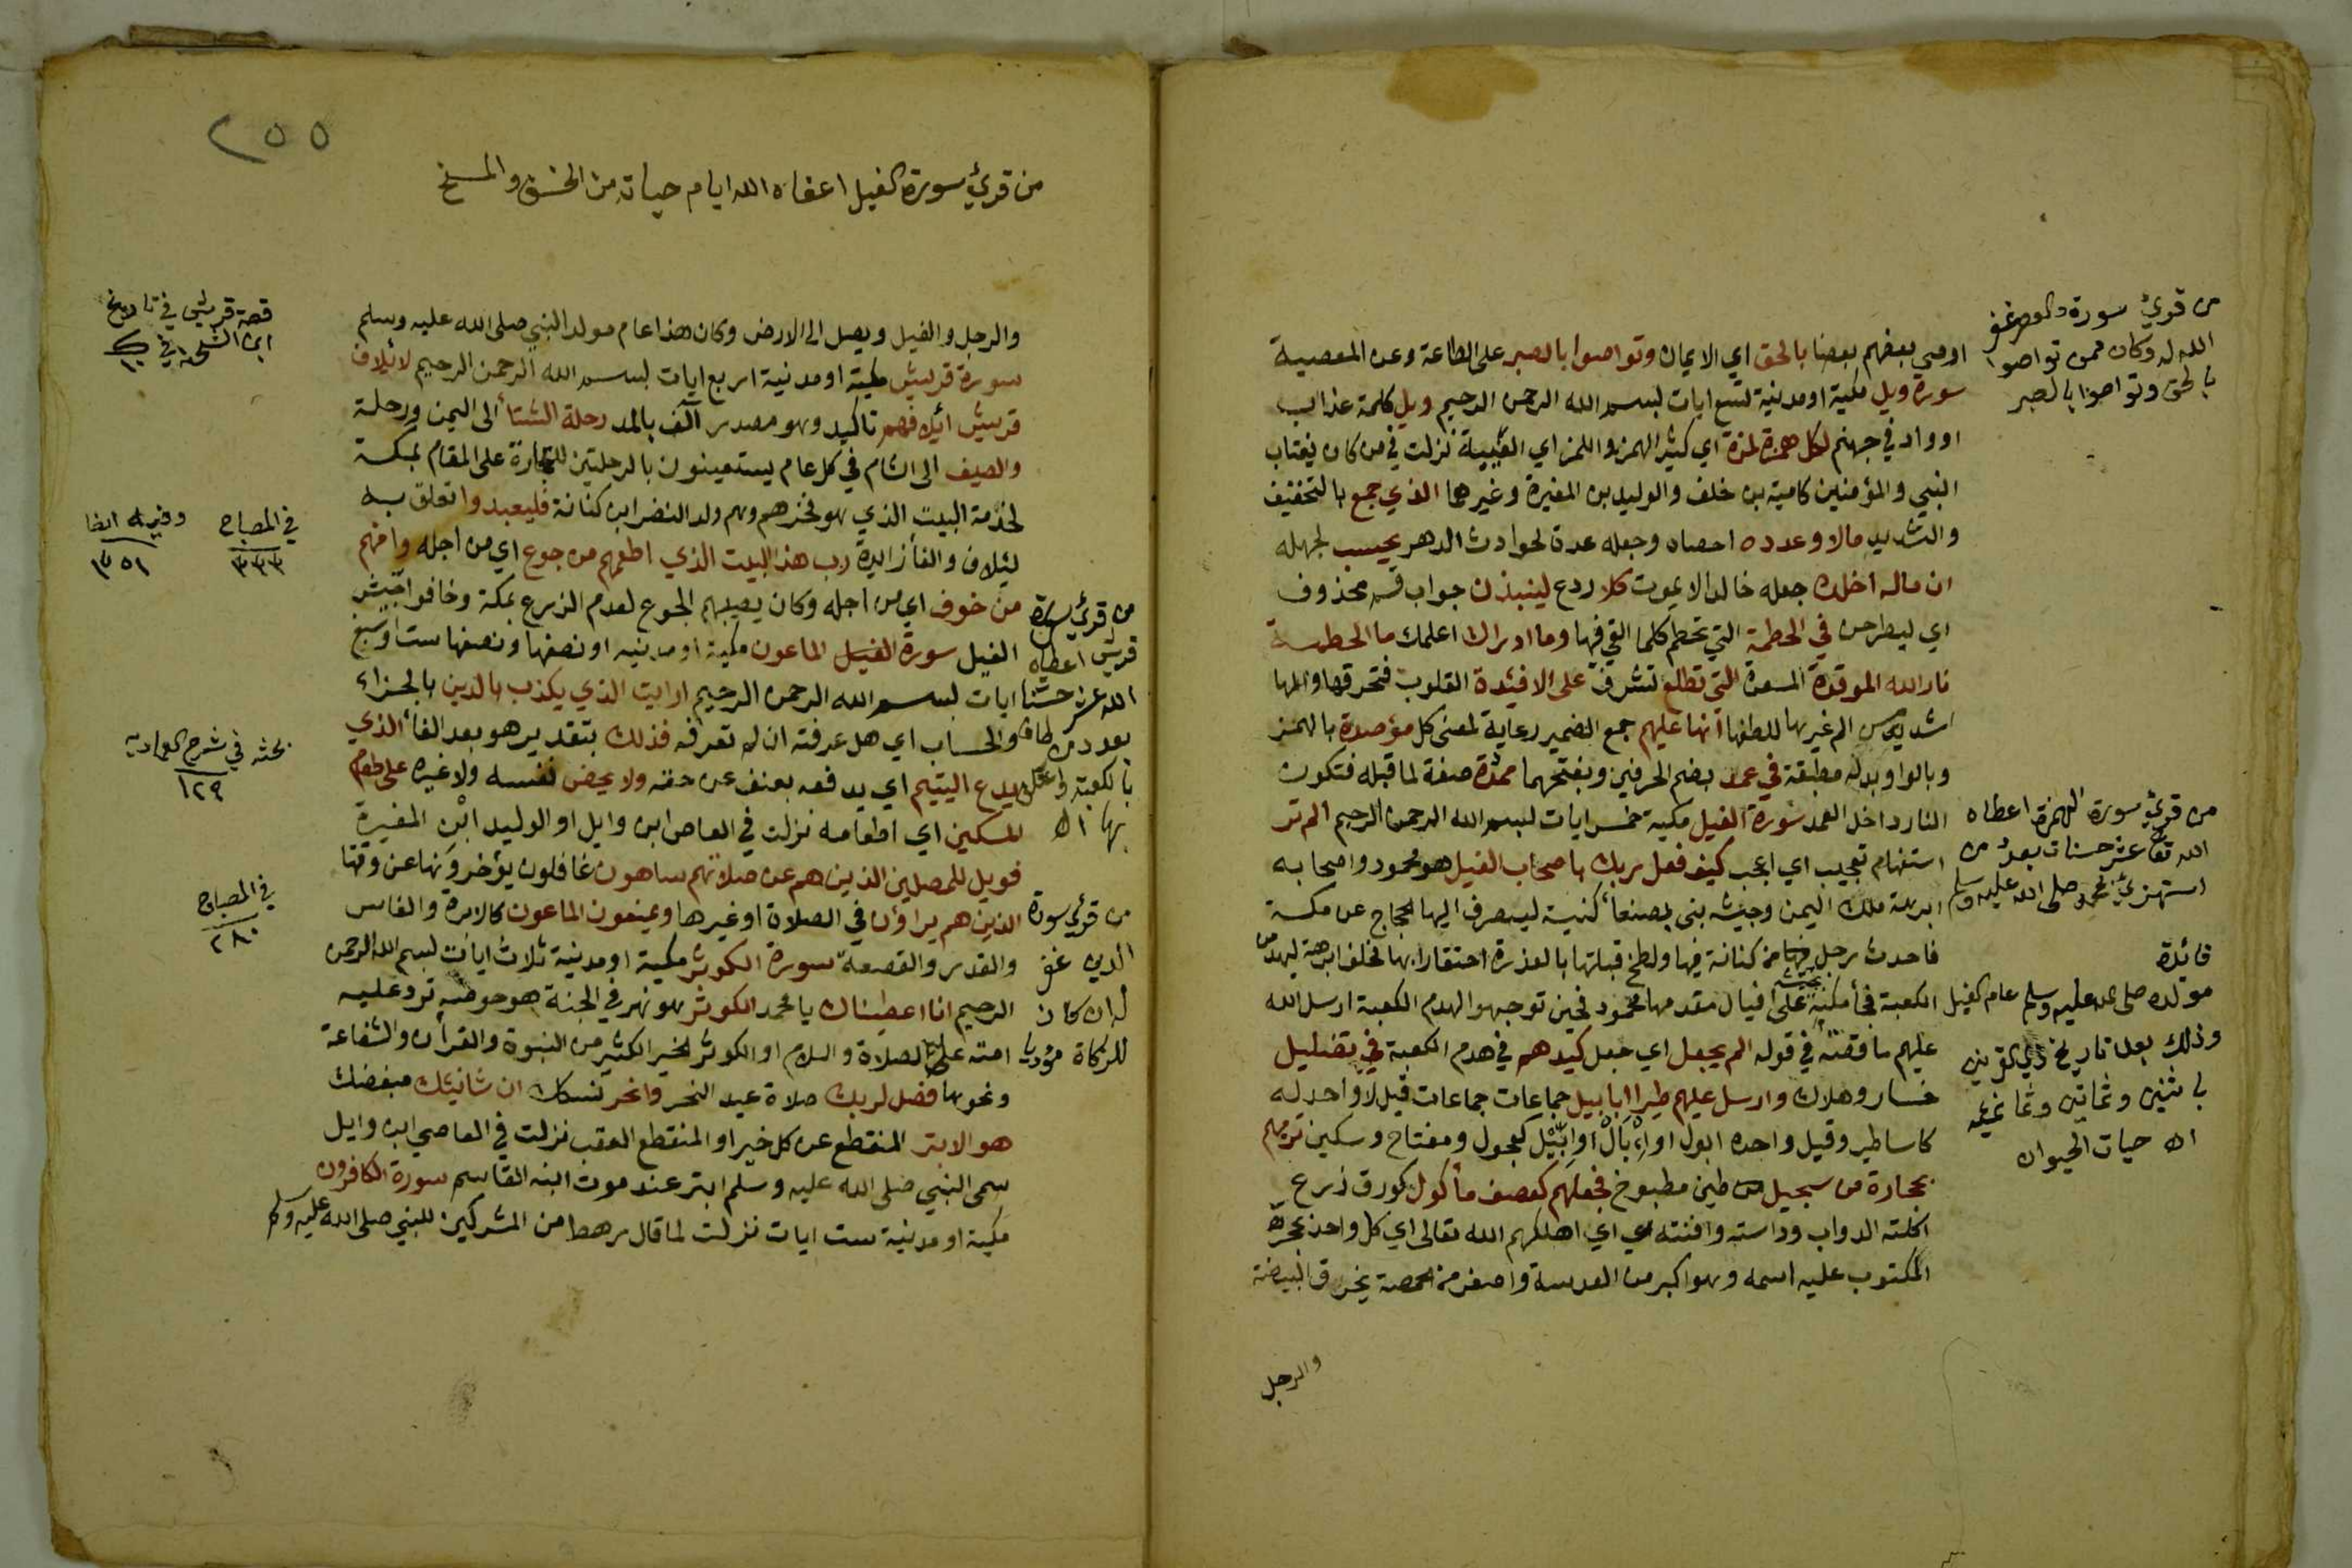 اوصي بعضهم بعضا بالحق اي الايمان وتواصوا بالصبر على الطاعة وعن المعصية
سورة ويل مكية او مدنية تسع ايات بسم الله الرحمن الرحيم ويل كلمة عذاب
او واد في جهنم لكل همزة لمزة اي كثير الهمز واللمز اي الغيبة نزلت في من كان يغتاب
النبي والمؤمنين كامية بن خلف والوليد بن المغيرة وغيرها الذي جمع بالتخفيف
والتشديد مالا وعدده احصاه وجعله عدة لحوادث الدهر يحسب لجهله
ان ماله اخلده جعله خالدا لا يموت كلا ردع لينبذن جواب قسم محذوف
اي ليطرحن في الحطمة التي تحطم كلما القي فيها وما ادراك اعلمك ما الحطمة
نار الله الموقدة المسعرة التي تطلع تشرف على الافئدة القلوب فتحرقها والمها
اشد من الم غيرها للطفها انها عليهم جمع الضمير رعاية لمعنى كل مؤصدة بالهمز
وبالواو بدله مطبقة في عمد بضم الحرفين وبفتحهما ممدة صفة لما قبله فتكون
النار داخل العمد سورة الفيل مكية خمس ايات بسم الله الرحمن الرحيم الم تر
استفهام تعجيب اي اعجب كيف فعل ربك باصحاب الفيل هو محمود واصحابه
ابرهة ملك اليمن وجيشه بنى بصنعاء كنيسة ليصرف اليها الحجاج عن مكة
فاحدث رجل من كنانة فيها ولطخ قبلتها بالعذرة احتقارا بها فحلف ابرهة ليهدمن
الكعبة فجاء مكة بجيشه على افيال مقدمها محمود فحين توجهوا لهدم الكعبة ارسل الله
عليهم ما قصه في قوله الم يجعل اي جعل كيدهم في هدم الكعبة في تضليل
خسار وهلاك وارسل عليهم طيرا ابابيل جماعات جماعات قيل لا واحد له
كاساطير وقيل واحده ابول او ابال او ابيل كعجول ومفتاح وسكين ترميهم
بحجارة من سجيل طين مطبوخ فجعلهم كعصف مأكول كورق زرع
اكلته الدواب وداسته وافنته اي اهلكهم الله تعالى اي كل واحد بحجره
المكتوب عليه اسمه وهو اكبر من العدسة واصغر من الحمصة يخرق البيضة
والرجل
من قرئ سورة والعصر غفر
الله له وكان ممن تواصوا
بالحق وتواصوا بالصبر
من قرئ سورة الهمزة اعطاه
الله تعا عشر حسنات بعدد من
استهزئ بمحمد صلى الله عليه وسلم
فائدة
مولده صلى الله عليه وسلم عام الفيل
وذلك بعد تاريخ ذي القرنين
باثنين وثمانين وثمانمئه
اه حيات الحيوان
٢٥٥
من قرئ سورة الفيل اعفاه الله ايام حياته من الخسف والمسخ
والرجل والفيل ويصل الى الارض وكان هذا عام مولد النبي صلى الله عليه وسلم
سورة قريش مكية او مدنية اربع ايات بسم الله الرحمن الرحيم لائلاف
قريش ائلافهم تاكيد وهو مصدر آلف بالمد رحلة الشتاء الى اليمن ورحلة
والصيف الى الشام في كل عام يستعينون بالرحلتين للتجارة على المقام بمكة
لخدمة البيت الذي هو فخرهم وهم ولد النضر ابن كنانة فليعبدوا تعلق به
لئلاف والفاء زايدة رب هذا البيت الذي اطعمهم من جوع اي من اجله وامنهم
من خوف اي من اجله وكان يصيبهم الجوع لعدم الزرع بمكة وخافوا جيش
الفيل سورة الماعون مكية او مدنيه او نصفها ونصفها ست او سبع
ايات بسم الله الرحمن الرحيم ارايت الذي يكذب بالدين بالجزاء
والحساب اي هل عرفته ان لم تعرفه فذلك بتقدير هو بعد الفاء الذي
يدع اليتيم اي يدفعه بعنف عن حقه ولا يحض نفسه ولا غيره على طعام
المسكين اي اطعامه نزلت في العاص ابن وايل او الوليد ابن المغيرة
فويل للمصلين الذين هم عن صلاتهم ساهون غافلون يؤخرونها عن وقتها
الذين هم يراؤن في الصلاة او غيرها ويمنعون الماعون كالابرة والفاس
والقدر والقصعة سورة الكوثر مكية او مدنية ثلاث ايات بسم الله الرحمن
الرحيم انا اعطيناك يا محمد الكوثر هو نهر في الجنة هو حوضه ترد عليه
امته عليه الصلاة والسلام او الكوثر الخير الكثير من النبوة والقرآن والشفاعة
ونحوها فصل لربك صلاة عيد النحر وانحر نسكك ان شانيئك مبغضك
هو الابتر المنقطع عن كل خير او المنقطع العقب نزلت في العاصي ابن وايل
سمى النبي صلى الله عليه وسلم ابتر عند موت ابنه القاسم سورة الكافرون
مكية او مدنية ست ايات نزلت لما قال رهط من المشركين للنبي صلى الله عليه وسلم
من قرئ سورة
قريش اعطاه
الله عشر حسنات
بعدد من طاف
بالكعبة واعتكف
بها اه
من قرئ سورة
الدين غفر
له ان كان
للزكاة مؤديا
قصة قريش في تاريخ
ابن الشحنة في
في المصباح
٣٣٣
وفيه ايضا
٣٥١
بحثه في شرح العماديه
١٢٩
في المصباح
٢٨٠